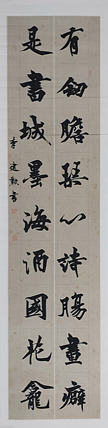 有劍膽琴心詩腸畫癖
是書城墨海酒國花龕
李建
書